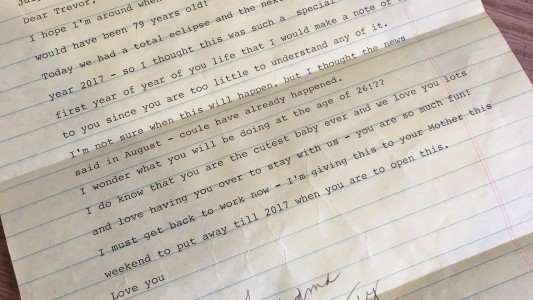 Dear Trevor,
I hope I'm around when
would have been 79 years old!
Today we had a total eclipse and the next
year 2017 - so I thought this was such a special
first year of year of you life that I would make a note of
to you since you are too little to understand any of it.
I'm not sure when this will happen, but I thought the news
said in August - coule have already happened.
I wonder what you will be doing at the age of 26!??
I do know that you are the cutest baby ever and we love you lots
and love having you over to stay with us - you are so much fun!
I must get back to work now - I'm giving this to your Mother this
weekend to put away till 2017 when you are to open this.
Love you